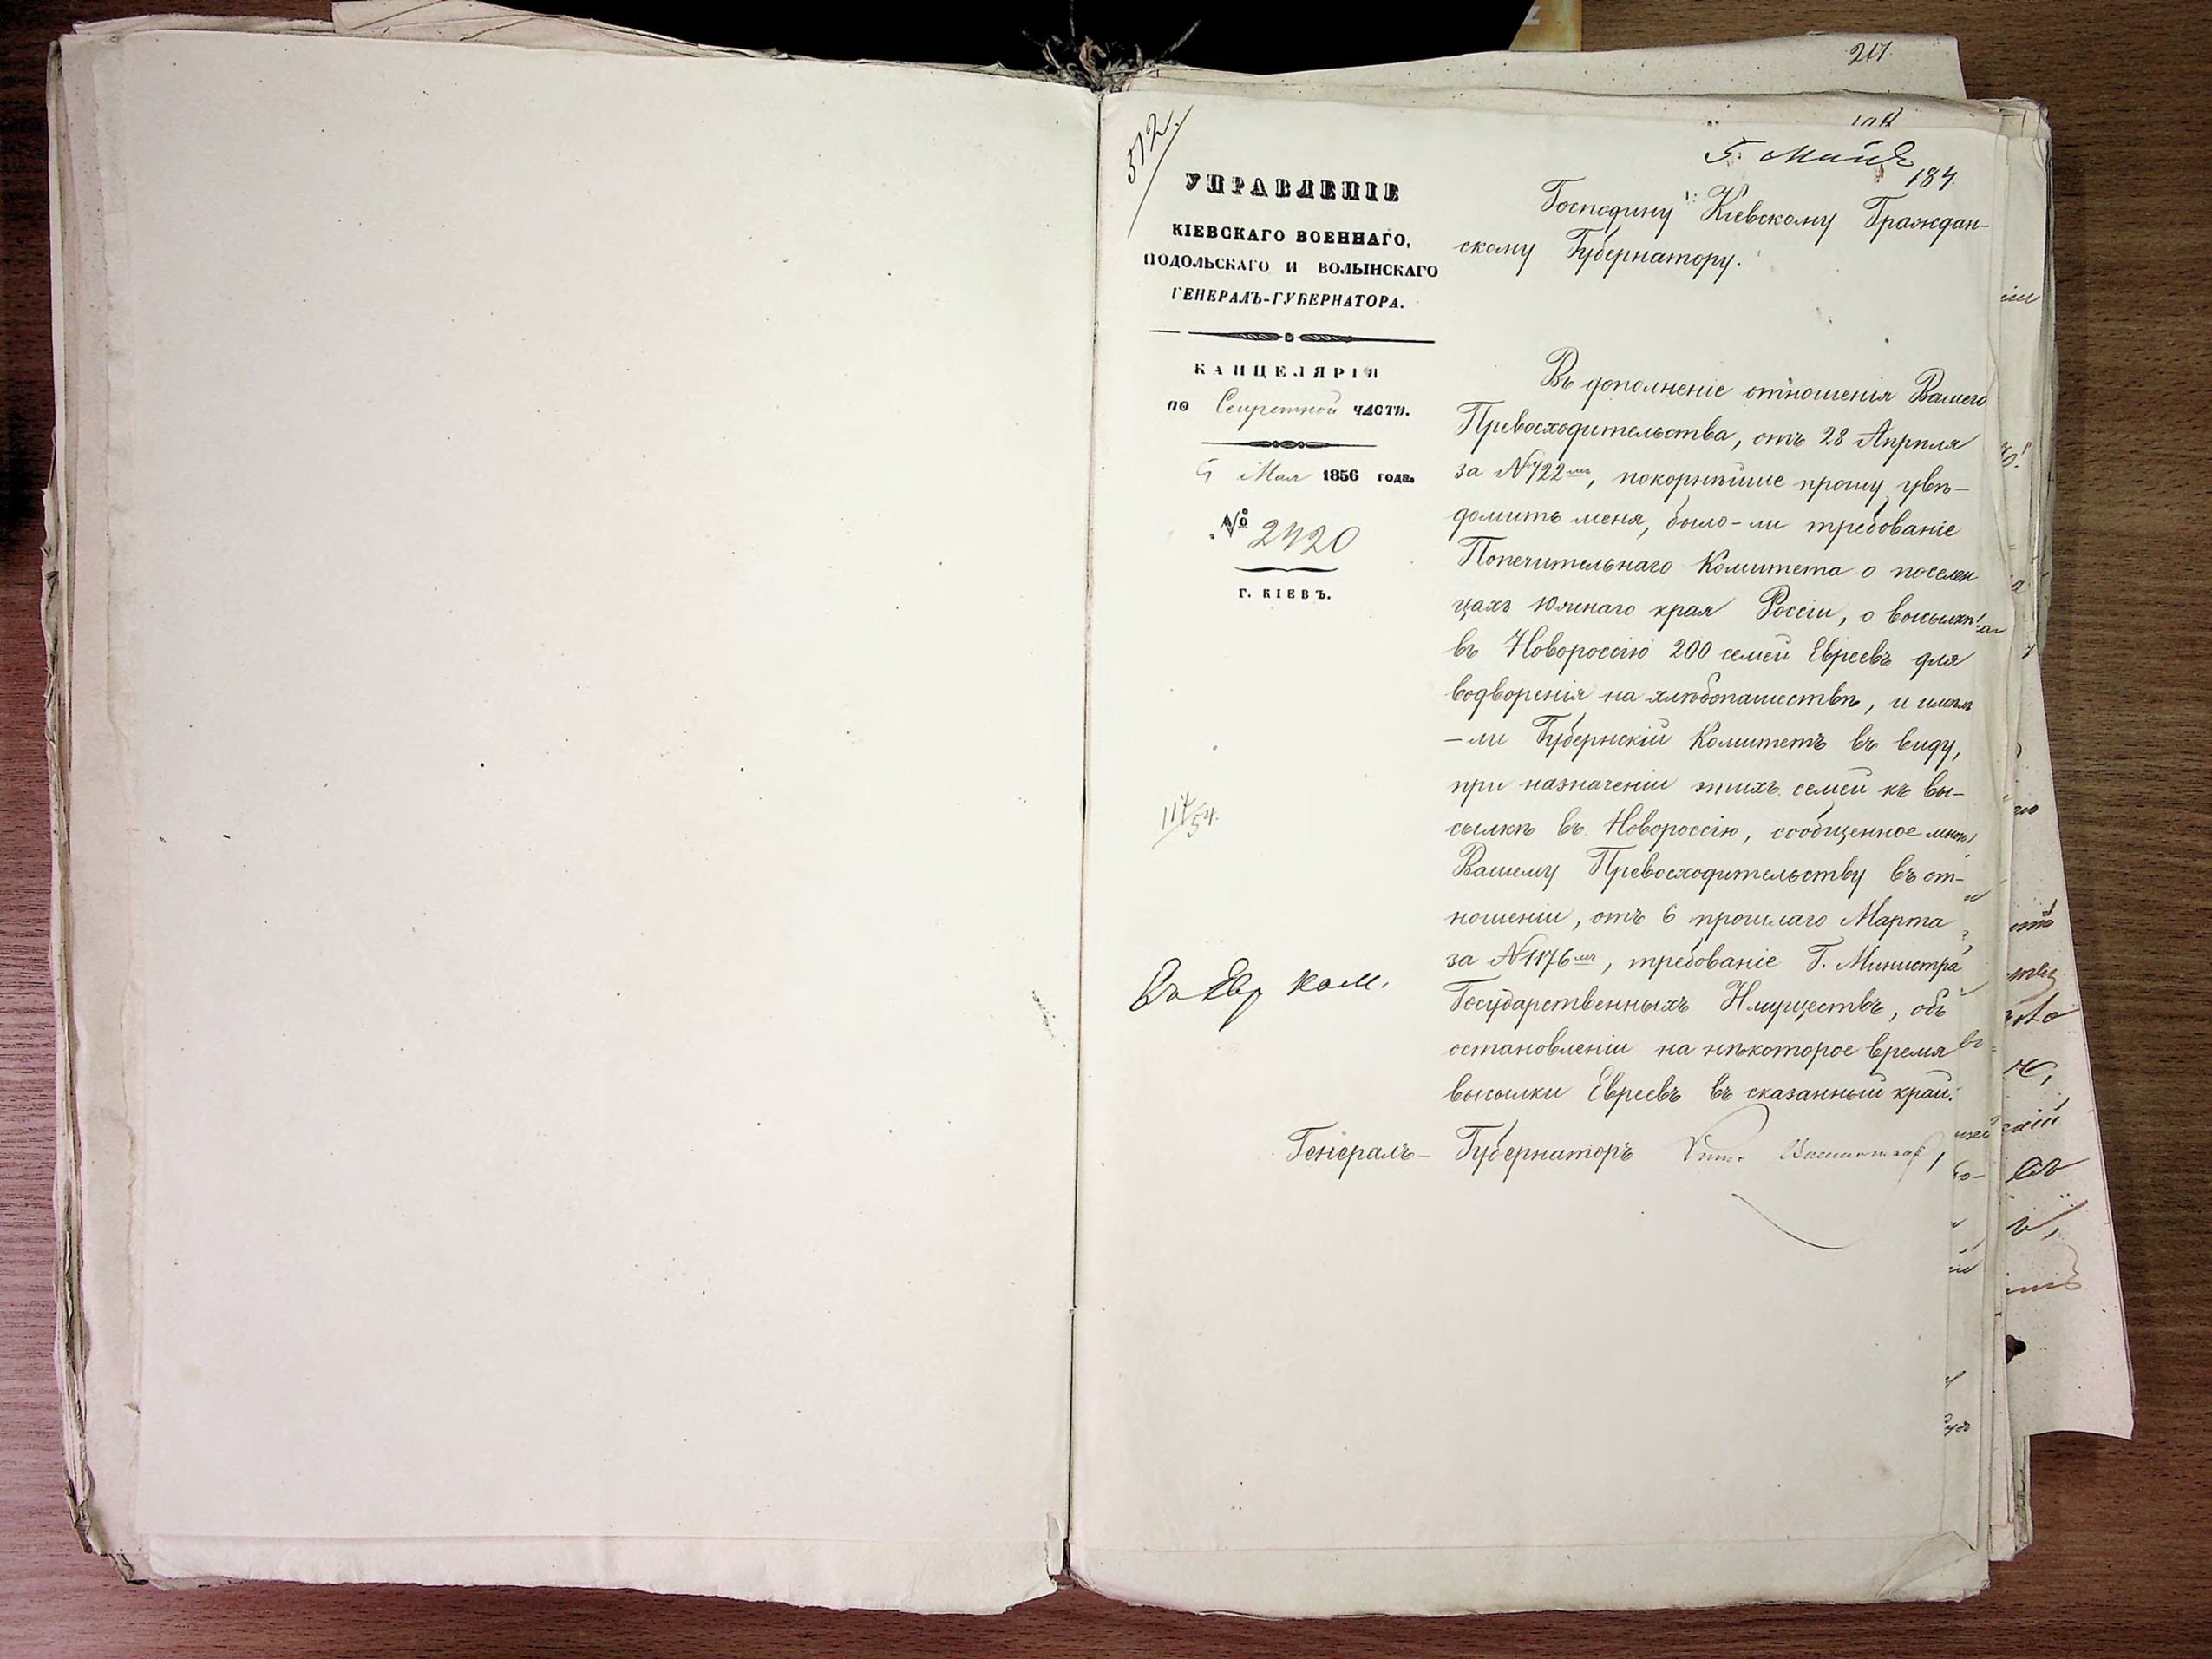 217
512.
5. Мая
184
УПРАВЛЕНІЕ
КІЕВСКАГО ВОЕННАГО,
ПОДОЛЬСКАГО И ВОЛЫНСКАГО
ГЕНЕРАЛЪ-ГУБЕРНАТОРА.
КАНЦЕЛЯРІЯ
по Секретной части.
5 Мая 1856 года.
№ 2420
Г. КІЕВЪ.
117/54.
Въ Евр ком.
Господину Кіевскому Граждан-
скому Губернатору.
Въ дополненіе отношенія Вашего
Превосходительства, отъ 28 Апрѣля
за №722мъ, покорнѣйше прошу увѣ-
домить меня, было-ли требованіе
Попечительнаго Комитета о поселен
цахъ Южнаго края Россіи, о высылкѣ
въ Новороссію 200 семей Евреевъ для
водворенія на хлѣбопашествѣ, и имѣлъ
-ли Губернскій Комитетъ въ виду,
при назначеніи этихъ семей къ вы-
сылкѣ въ Новороссію, сообщенное мною,
Вашему Превосходительству въ от-
ношеніи, отъ 6 прошлаго Марта
за №1176мъ, требованіе Г. Министра
Государственныхъ Имуществъ, объ
остановленіи на нѣкоторое время
высылки Евреевъ въ сказанный край.
Генералъ-Губернаторъ Князь Васильчиковъ